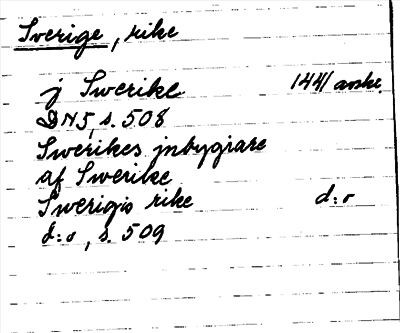 Sverige, rike
j Swerike 1441 avskr.
DN 5, s. 508
Swerikes jnbygiare
af Swerike
Swerigis rike d:o
d:o, s. 509